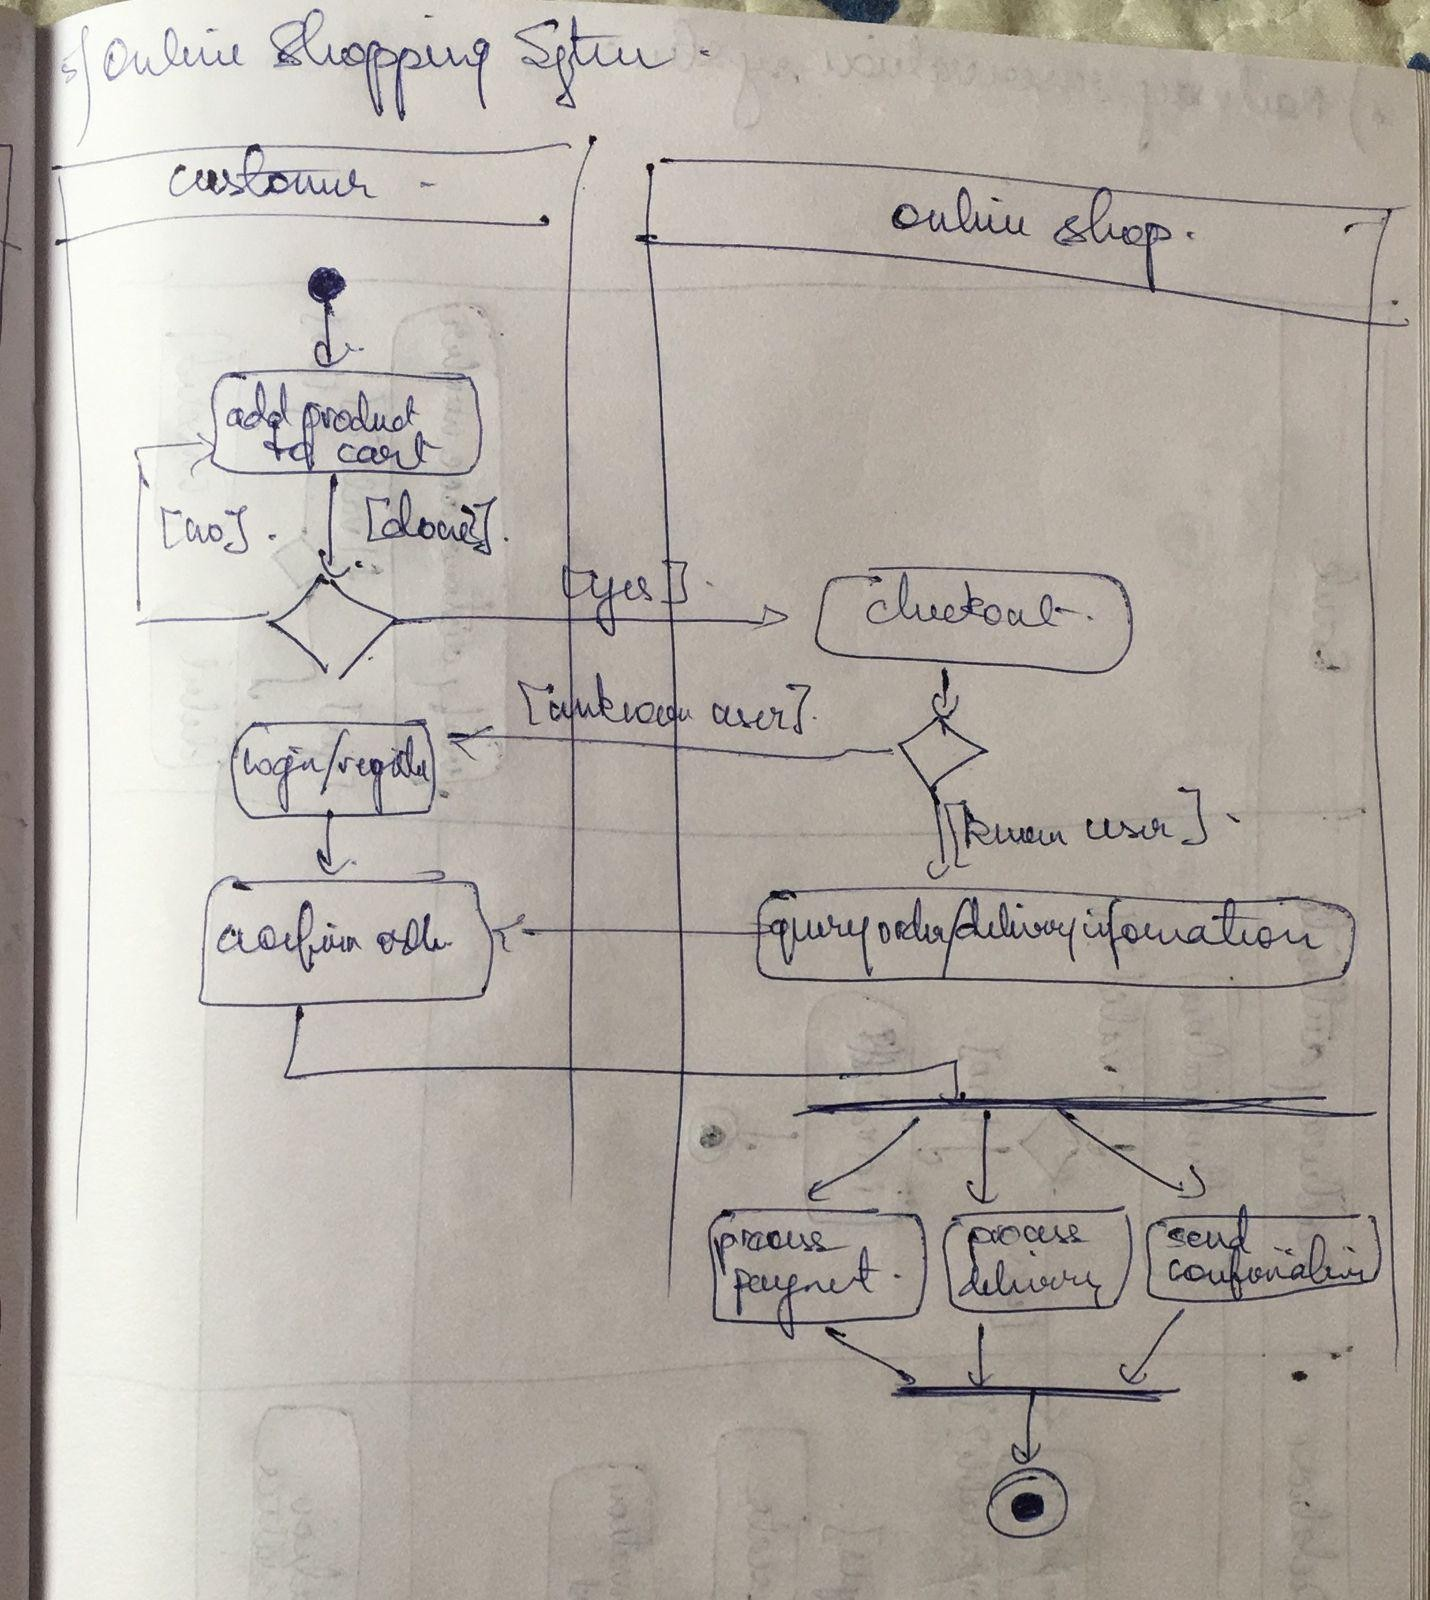 5) Online Shopping System.
customer
online shop.
add product
to cart
[no].
[done].
[yes].
checkout.
[unknown user].
login/register
[known user].
confirm order.
query order/delivery information
process
payment.
process
delivery
send
confirmation